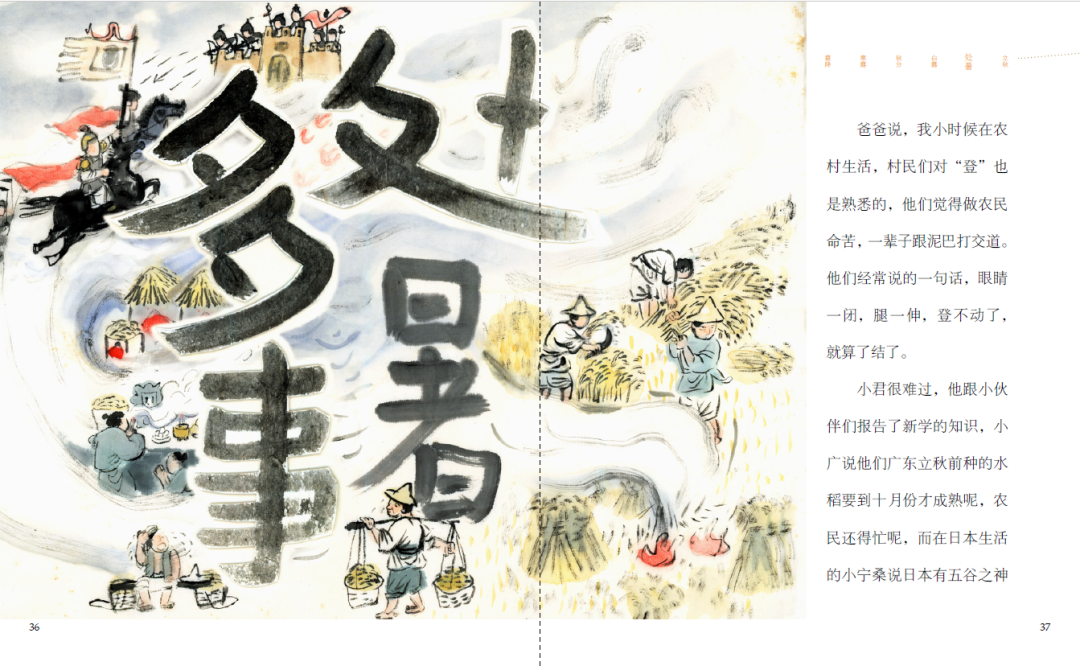 处暑
多事
霜降 寒露 秋分 白露 处暑 立秋
爸爸说，我小时候在农
村生活，村民们对“登”也
是熟悉的，他们觉得做农民
命苦，一辈子跟泥巴打交道。
他们经常说的一句话，眼睛
一闭，腿一伸，登不动了，
就算了结了。
小君很难过，他跟小伙
伴们报告了新学的知识，小
广说他们广东立秋前种的水
稻要到十月份才成熟呢，农
民还得忙呢，而在日本生活
的小宁桑说日本有五谷之神
36
37